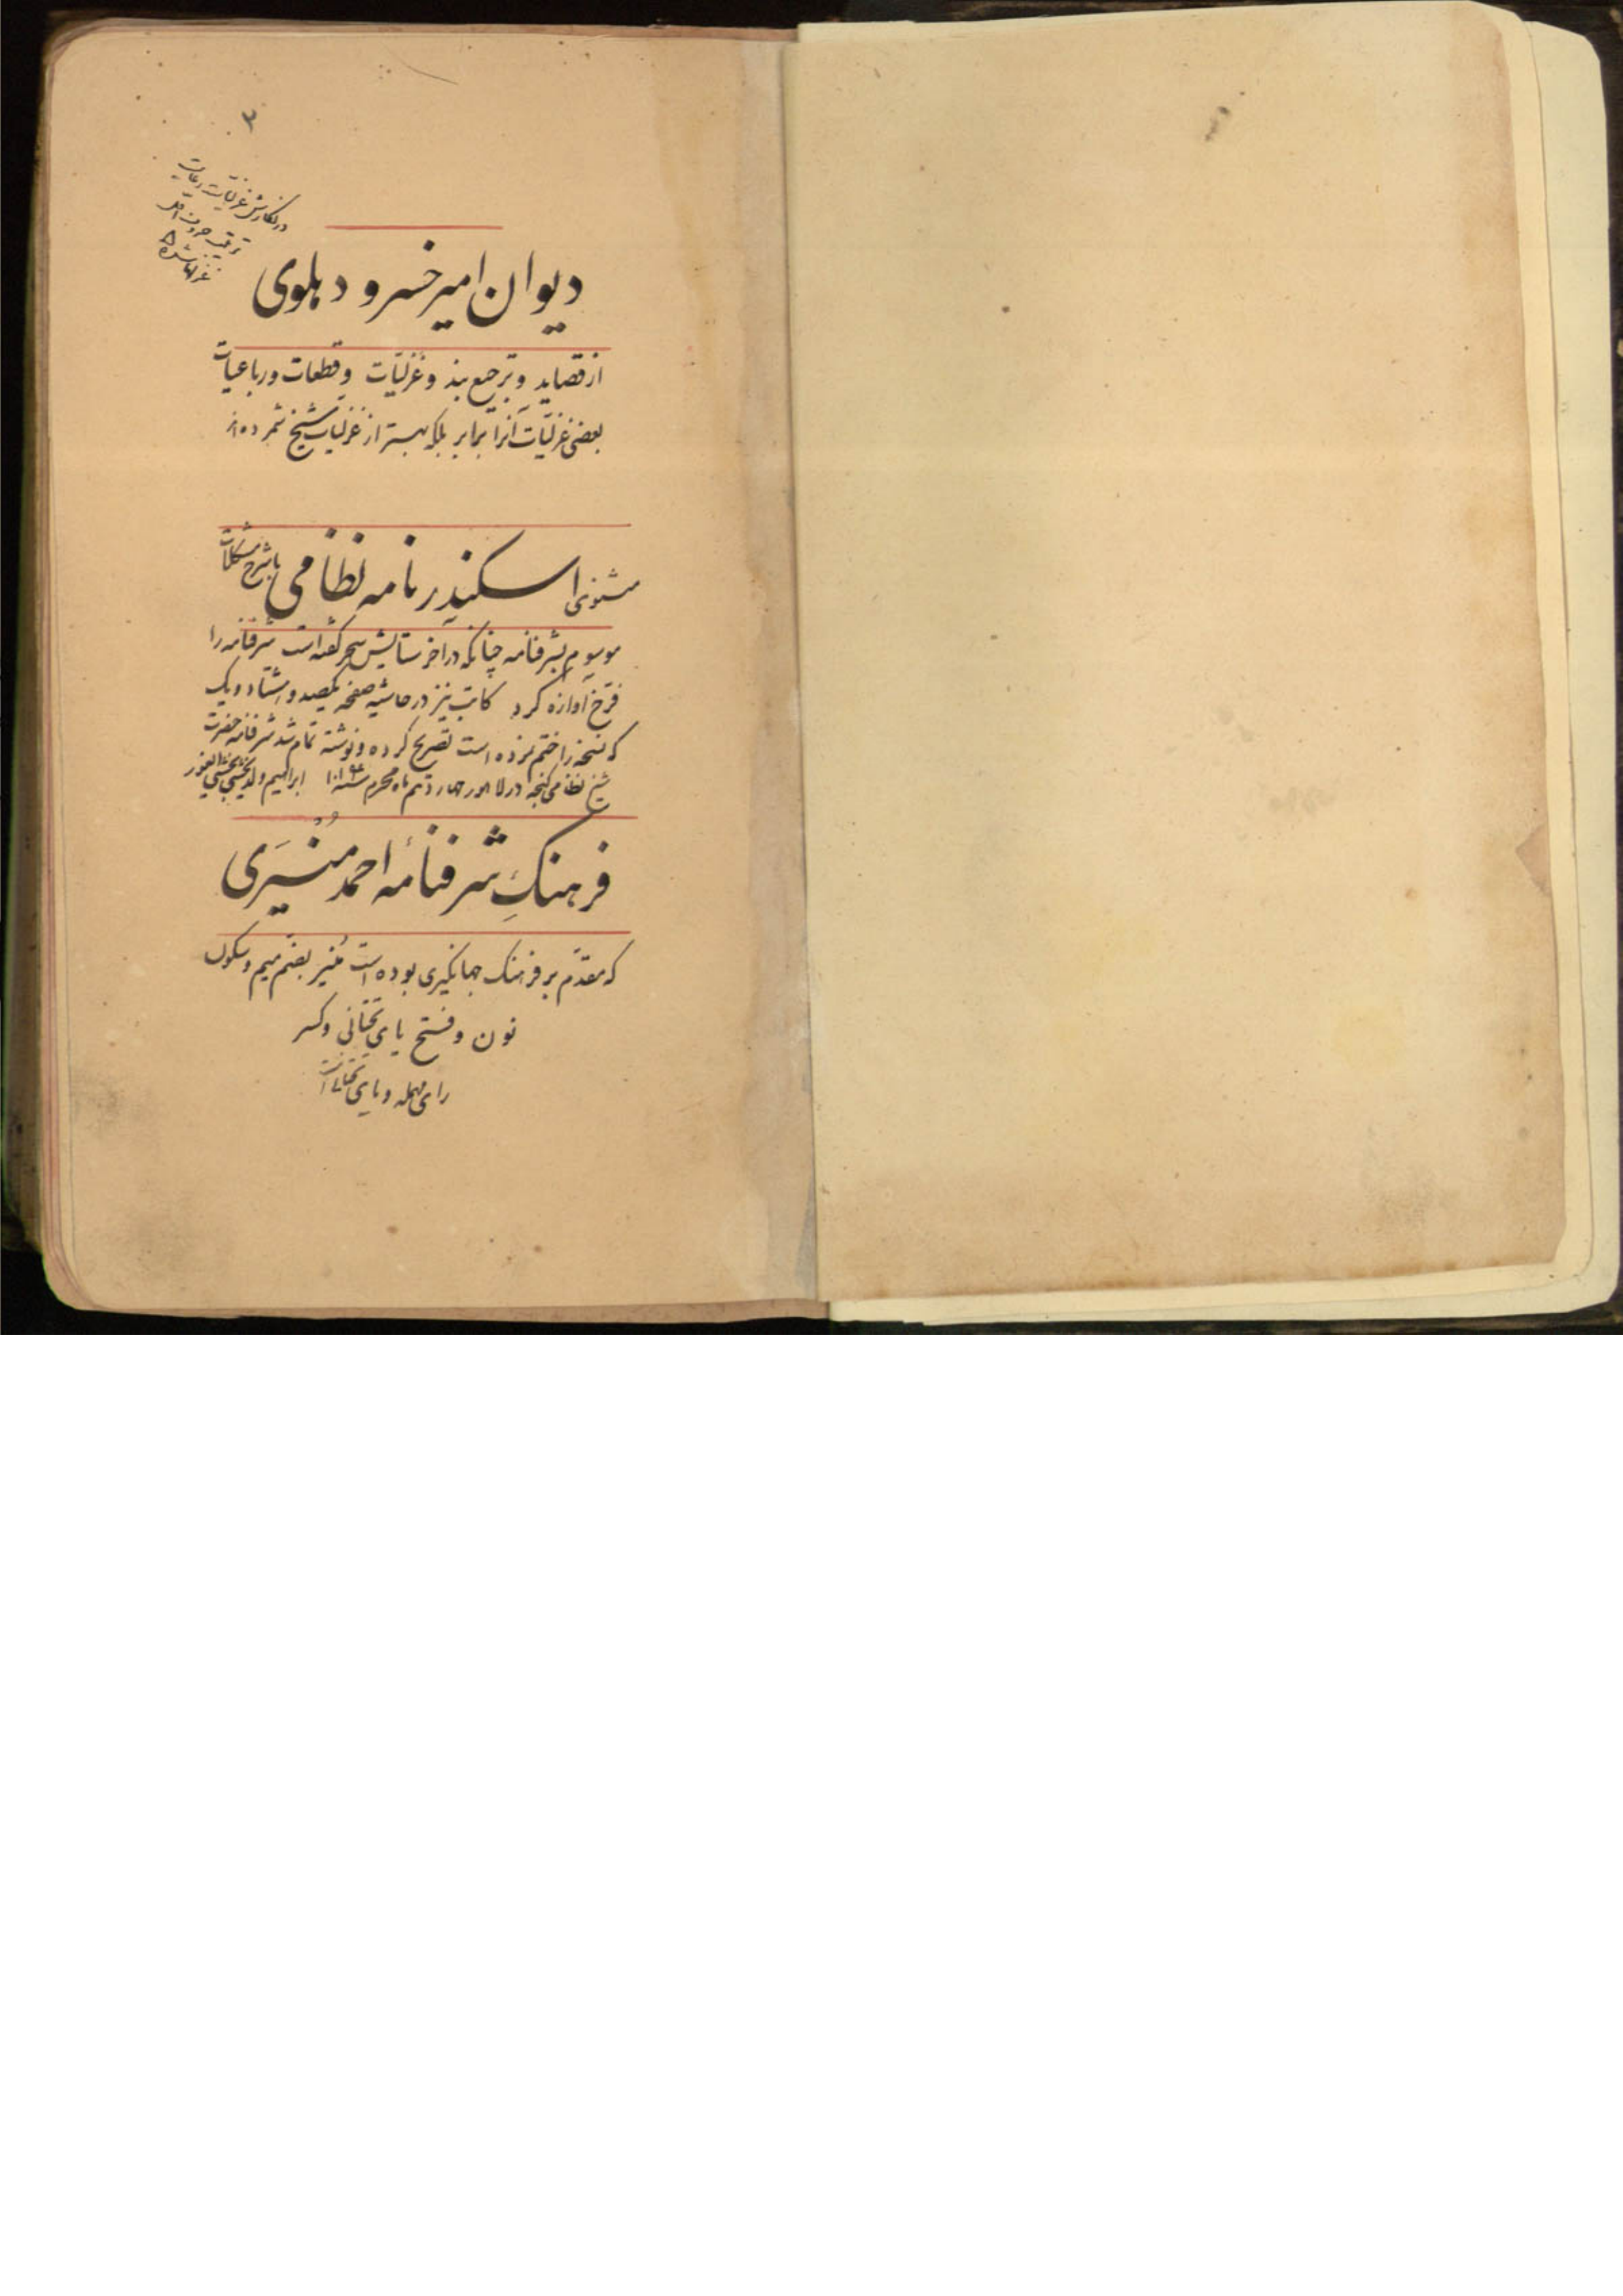 ۳
در نگارش غزلیات رعایت
ترتیب حروف اول
غزلها شده
دیوان امیر خسرو دهلوی
از قصاید و ترجیع بند و غزلیات و قطعات و رباعیات
بعضی غزلیات آنرا برابر بلکه بهتر از غزلیات شیخ شمرده‌اند
مثنوی اسکندر نامه نظامی با شرح مشکلات
موسوم بشرفنامه چنانکه در آخر ستایش سحر گفته است شرفنامه را
فرخ آوازه کرد کاتب نیز در حاشیه صفحه یکصد و هشتاد و یک
که نسخه را ختم نموده است تصریح کرده و نوشته تمام شد شرفنامه حضرت
شیخ نظامی گنجه در لاهور چهاردهم ماه محرم سنه ابراهیم ولد
فرهنگِ شرفنامهٔ احمد مُنْیَری
که مقدم بر فرهنگ جهانگیری بوده است مُنیر بضم میم و سکون
نون و فتح یای تحتانی و کسر
رای مهمله و یای تحتانی است